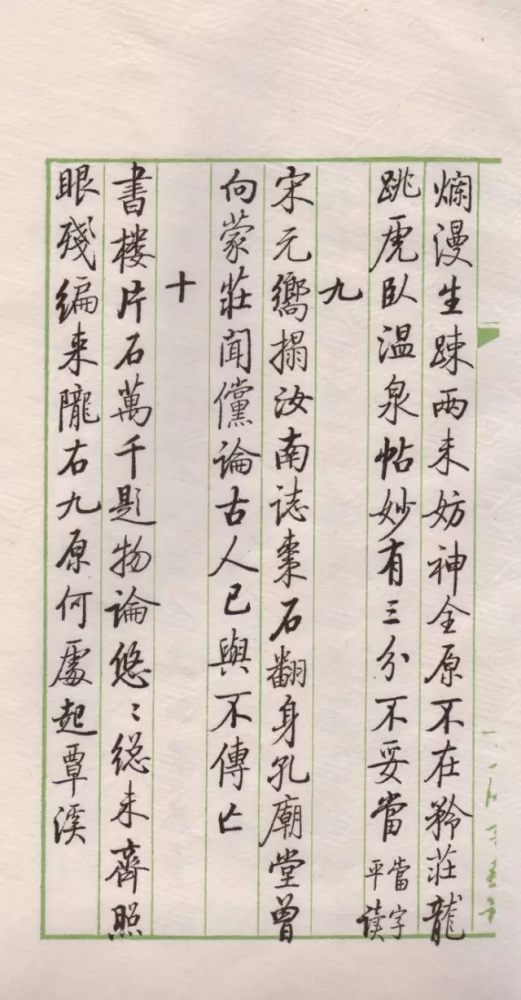 爛漫生踈兩未妨神全原不在矜莊龍
跳虎卧温泉帖妙有三分不妥當 當字平读
九
宋元嚮搨汝南誌棗石翻身孔廟堂曾
向蒙莊聞儻論古人已與不傳亡
十
書楼片石萬千題物論悠〻総未齊照
眼殘编来隴右九原何處起覃溪